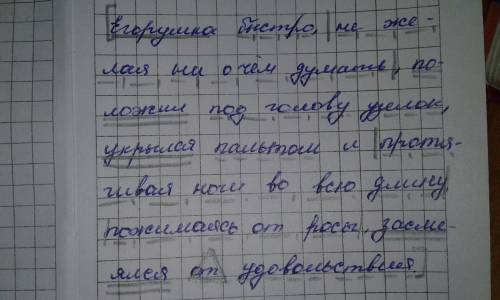 [Егорушка быстро, |не же-
лая ни о чём думать|, по-
ложил под голову узелок,
укрылся пальтом и |протя-
гивая ноги во всю длину,
пожимаясь от росы|, засме-
ялся от удовольствия.]